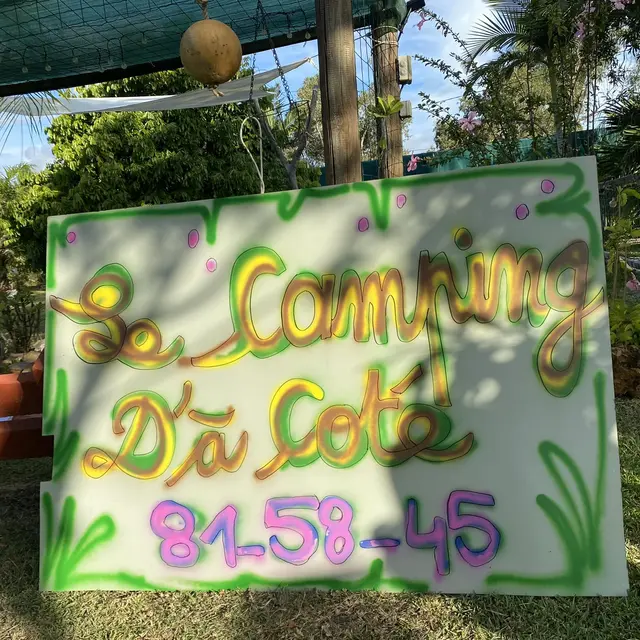 Le Camping
D'à Coté
81-58-45